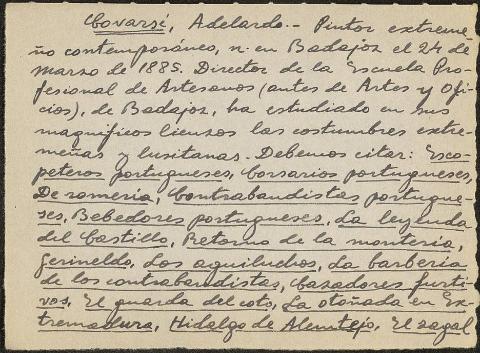 Covarsí, Adelardo.- Pintor extreme-
ño contemporáneo, n. en Badajoz el 24 de
marzo de 1885. Director de la Escuela Pro-
fesional de Artesanos (antes de Artes y Ofi-
cios), de Badajoz, ha estudiado en sus
magníficos lienzos las costumbres extre-
meñas y lusitanas. Debemos citar: Esco-
peteros portugueses, Corsarios portugueses,
De romería, Contrabandistas portugue-
ses, Bebedores portugueses, La leyenda
del Castillo, Retorno de la montería,
Gerineldo, Los aguiluchos, La barbería
de los contrabandistas, Cazadores furti-
vos, El guarda del coto, La otoñada en Ex-
tremadura, Hidalgo de Alemtejo, El zagal